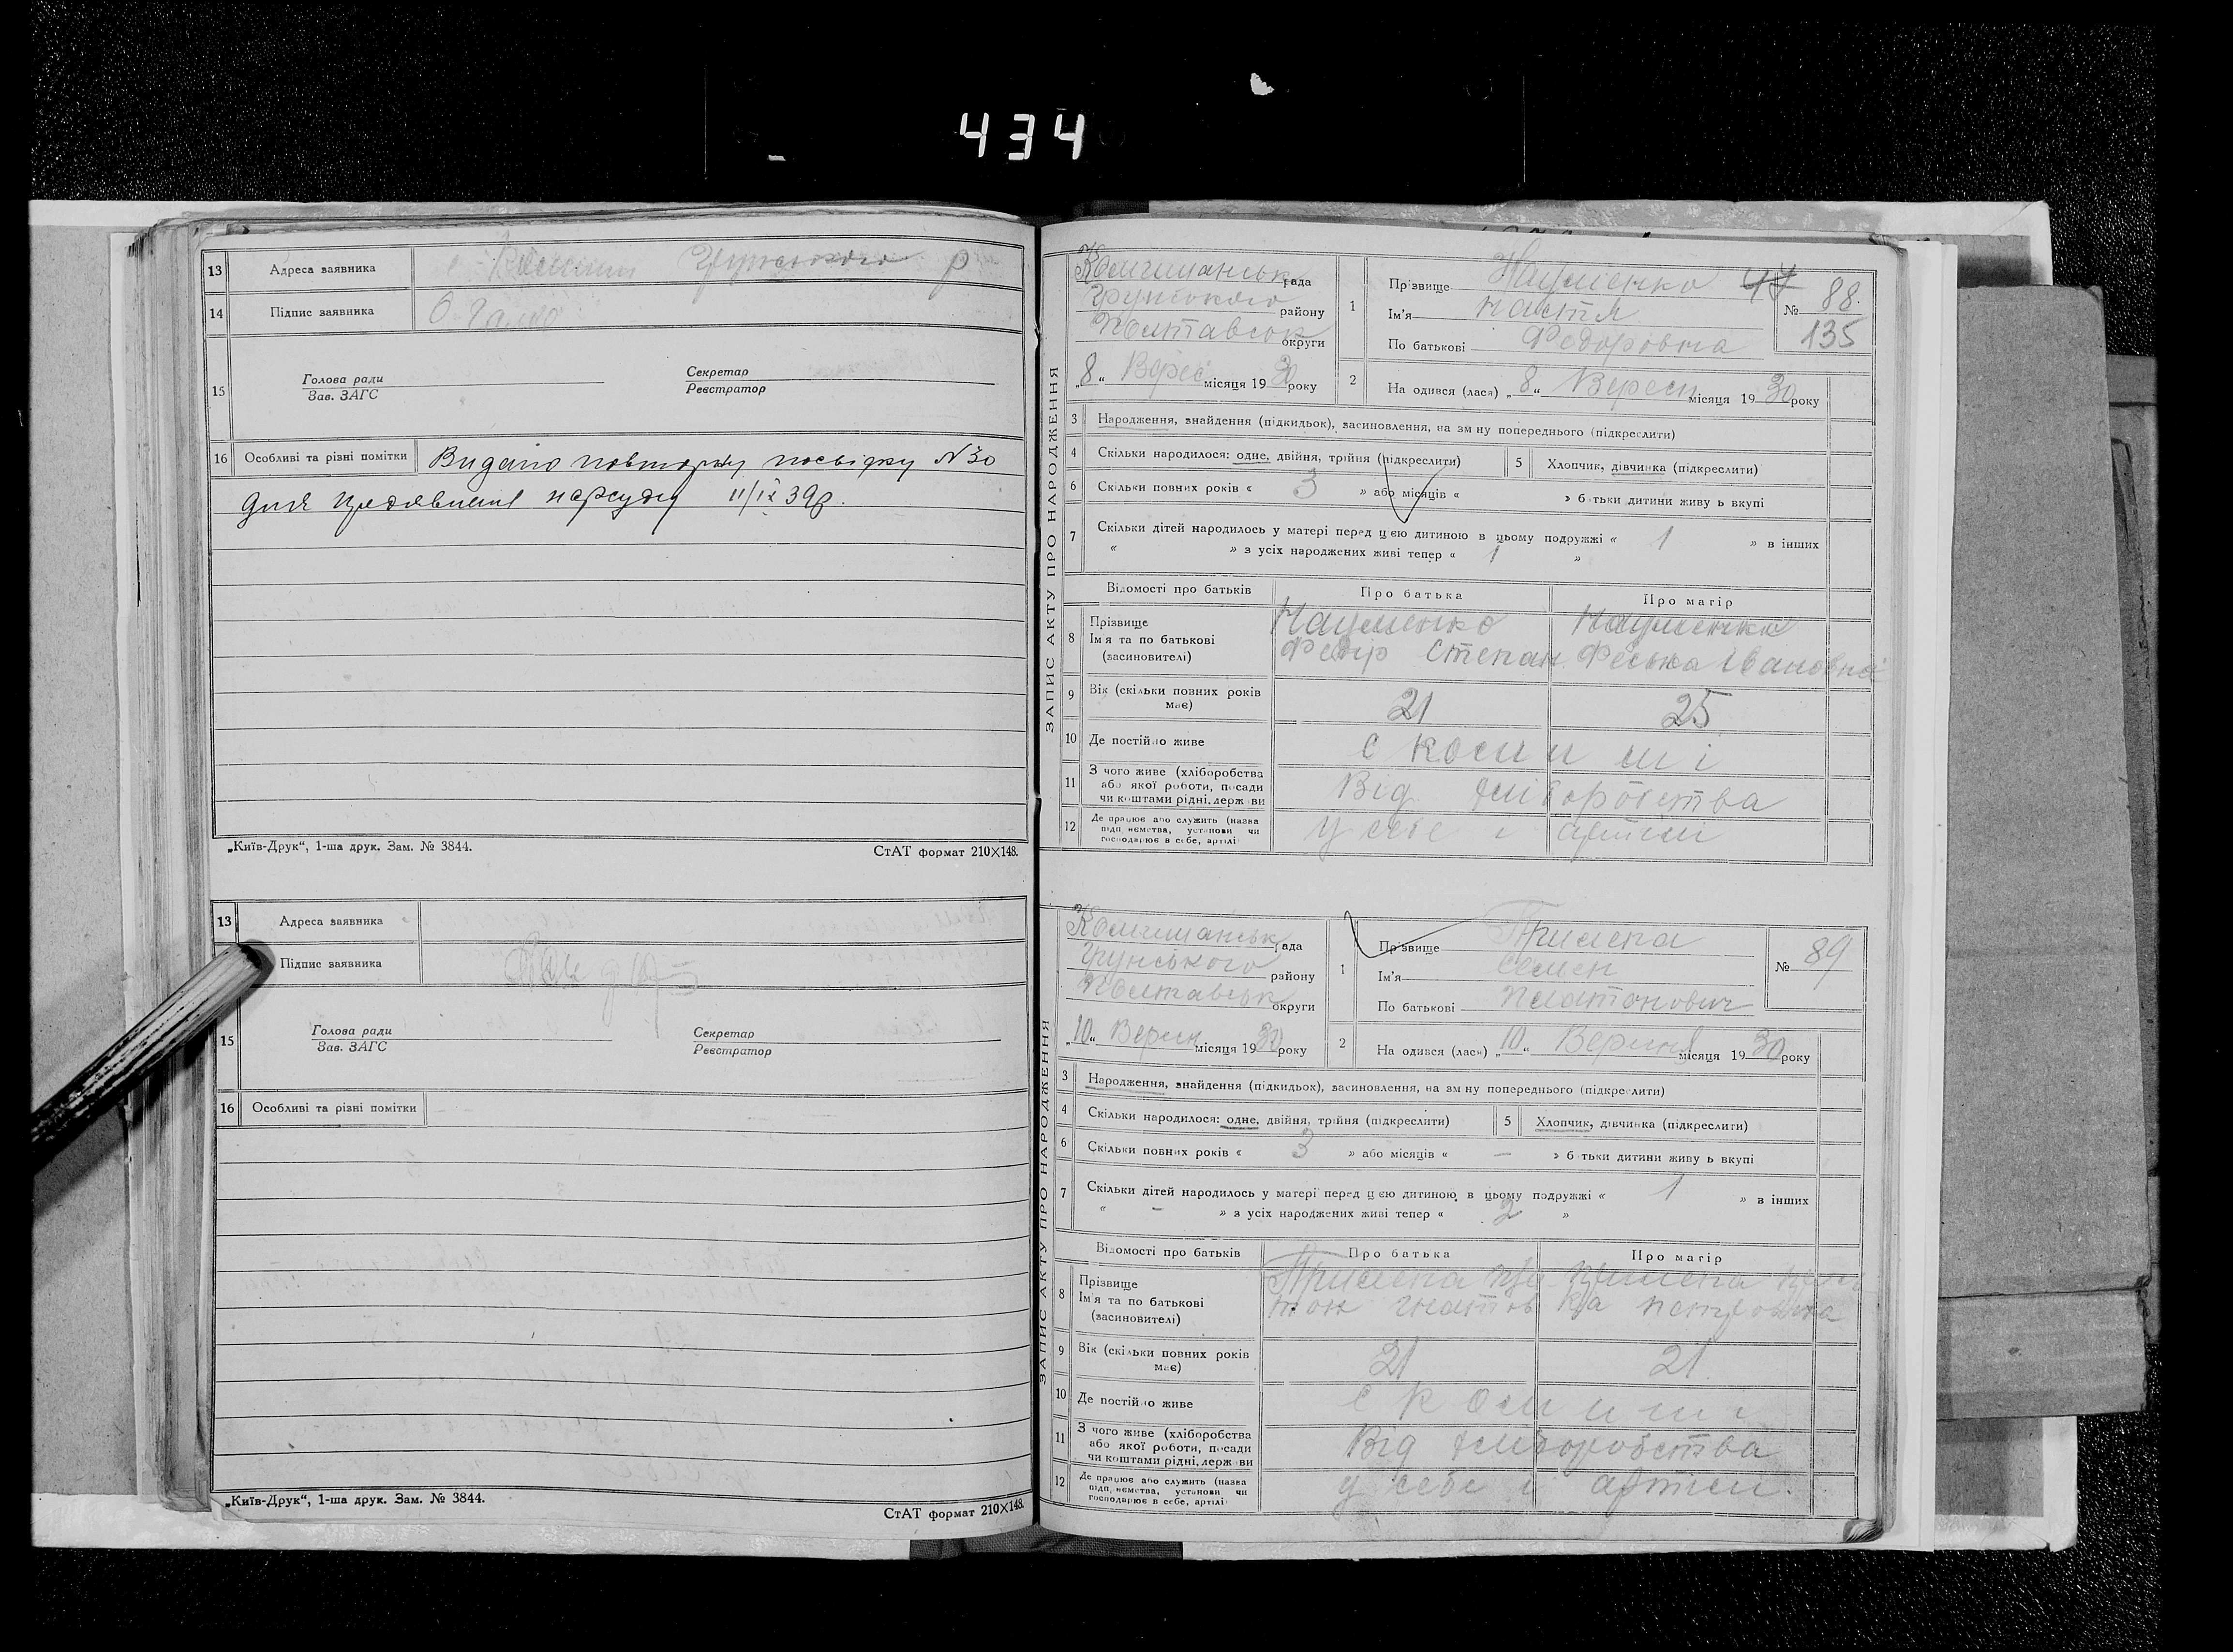 434
13 Адреса заявника с Грунського р
14 Підпис заявника
15 Голова ради Секретар
Зав. ЗАГС Реєстратор
16 Особливі та різні помітки Видано повторну посвідку N 30
для нарсуду 11/IX 39р.
„Київ-Друк“, 1-ша друк. Зам. № 3844. СтАТ формат 210×148.
13 Адреса заявника
Підпис заявника
15 Голова ради Секретар
Зав. ЗАГС Реєстратор
16 Особливі та різні помітки
„Київ-Друк“, 1-ша друк. Зам. № 3844. СтАТ формат 210×148.
ЗАПИС АКТУ ПРО НАРОДЖЕННЯ
рада
Грунського району
Полтавськ округи
„8“ Верес місяця 1930 року
1 Прізвище Науменко 47
Ім'я Настя
По батькові Федоровна
№ 88.
135
2 На одився (лася) „8“ Вересн місяця 1930 року
3 Народження, знайдення (підкидьок), засиновлення, на зм ну попереднього (підкреслити)
4 Скільки народилося: одне, двійня, трійня (підкреслити) 5 Хлопчик, дівчинка (підкреслити)
6 Скільки повних років « 3 » або місяців « » б тьки дитини живу ь вкупі
7 Скільки дітей народилось у матері перед цією дитиною в цьому подружжі « 1 » в інших
« » з усіх народжених живі тепер « 1 »
Відомості про батьків Про батька Про матір
8 Прізвище Науменко Науменко
Ім'я та по батькові Федір Степан Феська Івановна
(засиновителі)
9 Вік (скільки повних років має) 21 25
10 Де постійно живе с
11 З чого живе (хліборобства Від хліборобства
або якої роботи, посади
чи коштами рідні, держ ви
12 Де працює або служить (назва у себе і артілі
підп ємства, установи чи
господарює в себе, артілі
ЗАПИС АКТУ ПРО НАРОДЖЕННЯ
рада
Грунського району
Полтавськ округи
„10“ Верисн місяця 1930 року
1 Прізвище
Ім'я Семен
По батькові Платонович
№ 89
2 На одився (лася) „10“ місяця 1930 року
3 Народження, знайдення (підкидьок), засиновлення, на зм ну попереднього (підкреслити)
4 Скільки народилося: одне, двійня, трійня (підкреслити) 5 Хлопчик, дівчинка (підкреслити)
6 Скільки повних років « 3 » або місяців « – » б тьки дитини живу ь вкупі
7 Скільки дітей народилось у матері перед цією дитиною в цьому подружжі « 1 » в інших
« – » з усіх народжених живі тепер « 2 »
Відомості про батьків Про батька Про матір
8 Прізвище
Ім'я та по батькові
(засиновителі)
9 Вік (скільки повних років має) 21 21
10 Де постійно живе с
11 З чого живе (хліборобства Від хліборобства
або якої роботи, посади
чи коштами рідні, держ ви
12 Де працює або служить (назва у себе і артілі.
підп ємства, установи чи
господарює в себе, артілі